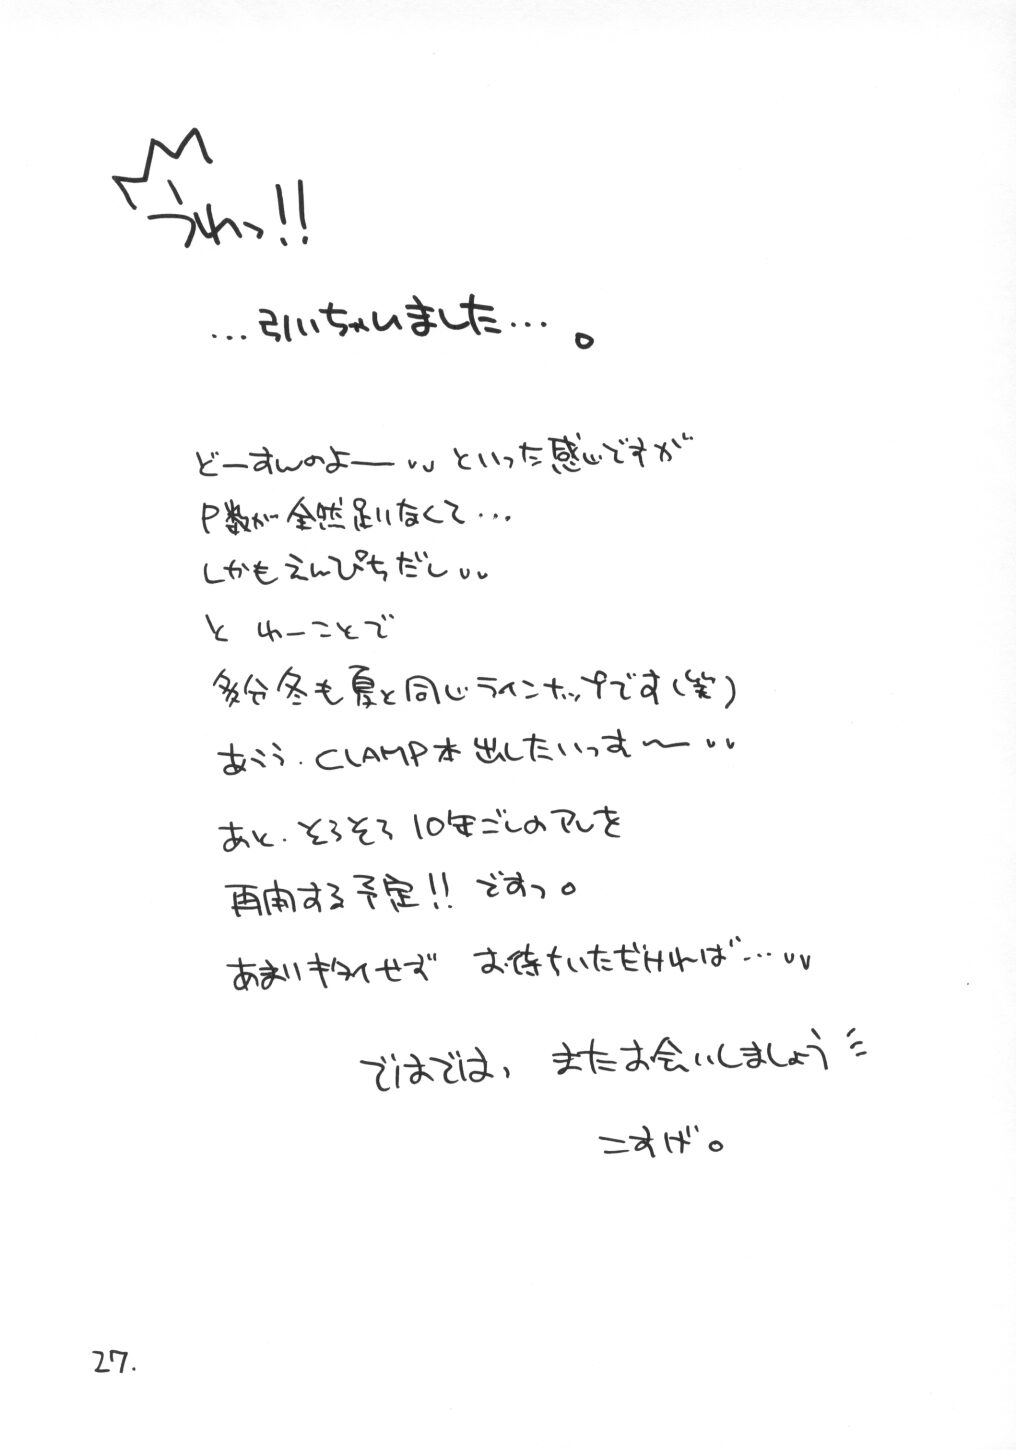 うわっ!!
…引いちゃいました…。
どーすんのよー といった感じですが
P数が全然足りなくて…
しかもえんぴちだし
と ゆーことで
多分冬も夏と同じラインナップです(笑)
あうう.CLAMP本出したいっす〜
あと.そろそろ10年ごしのアレを
再開する予定!!ですっ。
あまりキタイせず お待ちいただければ…
ではでは、またお会いしましょう
こすげ。
27.